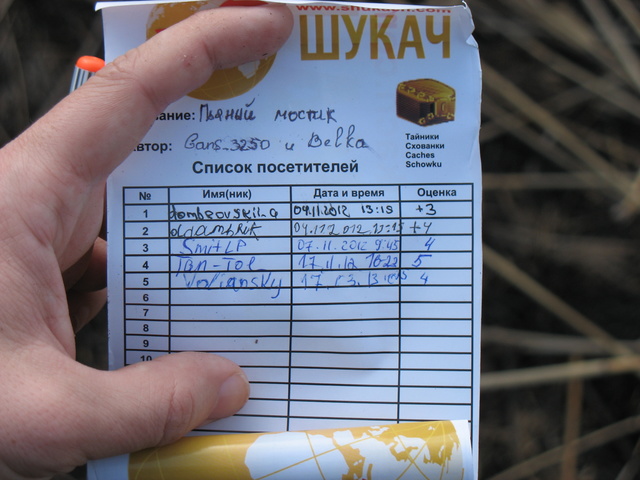 ШУКАЧ
Пьяний мостик
Автор: Gans_3250 и Belka
Тайники
Схованки
Caches
Schowku
Список посетителей
№ Имя(ник) Дата и время Оценка
1 dombrovskil_a 04.11.2012 13:15 +3
2 +4
3 SmitLP 07.11.2012 9:45 4
4 Tan-Tol 17.11.12 16:22 5
5 Voliansky 17.03.13 4
6
7
8
9
10